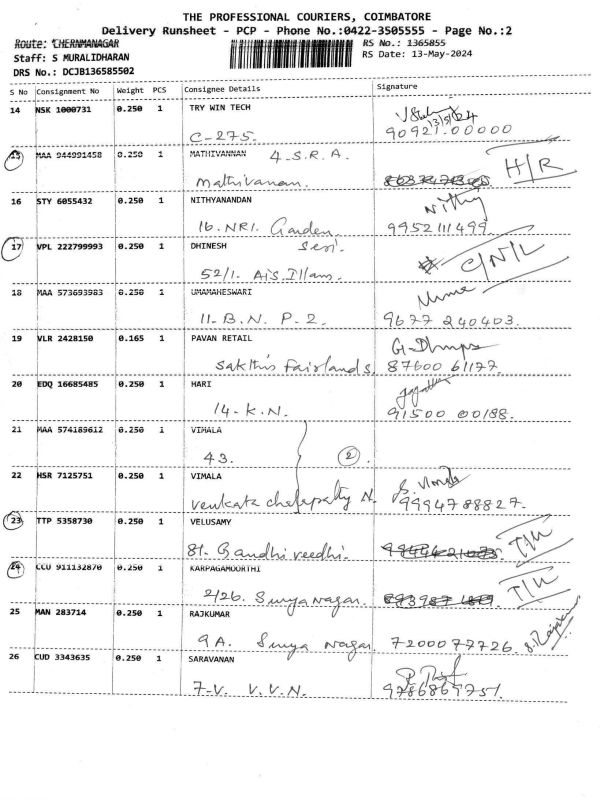 THE PROFESSIONAL COURIERS, COIMBATORE
Delivery Runsheet - PCP - Phone No.:0422-3505555 - Page No.:2
Route: CHERNMANAGAR
RS No.: 1365855
Staff: S MURALIDHARAN
RS Date: 13-May-2024
DRS No.: DCJB136585502
S No Consignment No Weight PCS Consignee Details Signature
14 NSK 1000731 0.250 1 TRY WIN TECH
13/5/24
C-275. 90921.00000
15 MAA 944991458 0.250 1 MATHIVANNAN 4-S.R.A. H/R
mathivanan.
16 STY 6055432 0.250 1 NITHYANANDAN Nithy
16. NRI. Garden. 9952111499
17 VPL 222799993 0.250 1 DHINESH C/N/L
52/1. AiS. Illam.
18 MAA 573693983 0.250 1 UMAMAHESWARI
11-B.N. P-2. 9677 240403.
19 VLR 2428150 0.165 1 PAVAN RETAIL
Sakthis Fairlands. 87600 61177.
20 EDQ 16685485 0.250 1 HARI
14-K.N. 91500 00188.
21 MAA 574189612 0.250 1 VIMALA
43. 2
22 HSR 7125751 0.250 1 VIMALA
Venkata N. 9994788827.
23 TTP 5358730 0.250 1 VELUSAMY
81- Gandhi veedhi.
24 CCU 911132870 0.250 1 KARPAGAMOORTHI
2/26. Surya Nagar.
25 MAN 283714 0.250 1 RAJKUMAR
9A. Surya Nagar. 7200077726. S. Rajkumar
26 CUD 3343635 0.250 1 SARAVANAN
7-V. V.V.N. 9786869751.